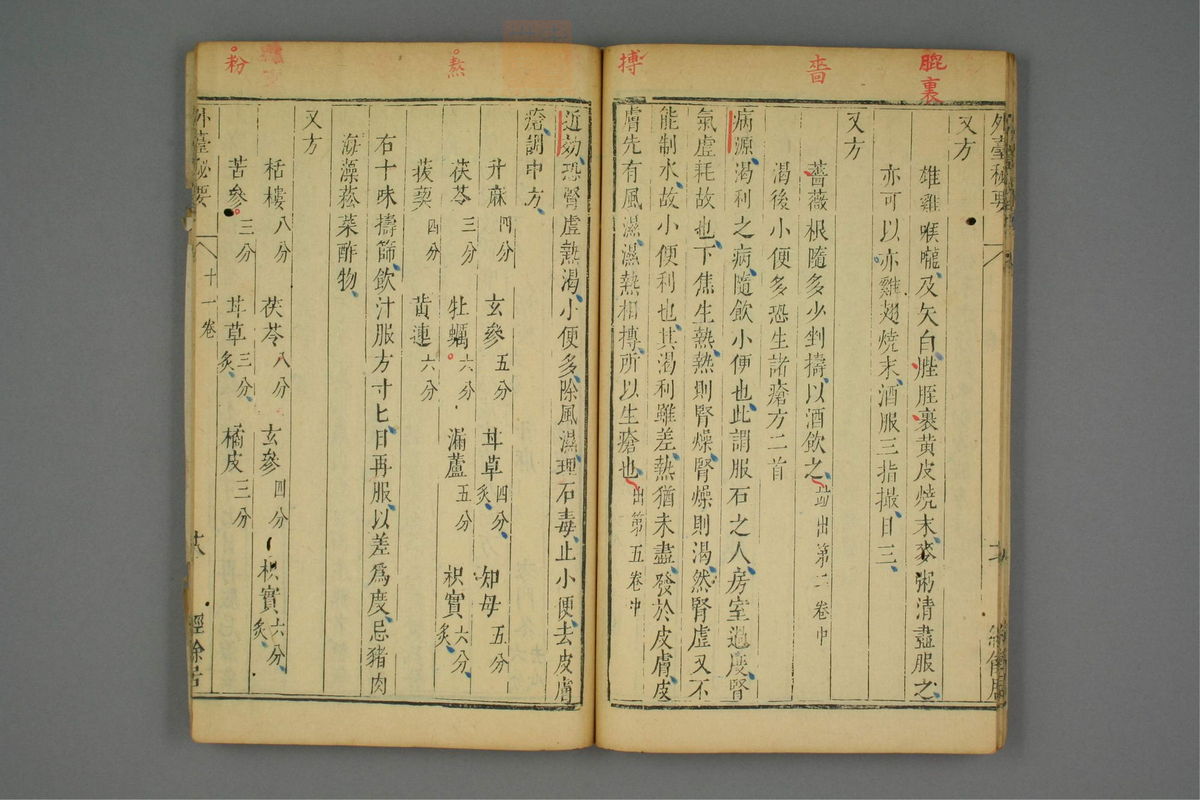 膍裏
嗇
搏
外臺秘要
又方
雄雞喉嚨及矢白膍胵裏黃皮燒末麥粥清盡服之
亦可以赤雞翅燒末酒服三指撮日三
又方
薔薇根隨多少剉擣以酒飲之並出第二卷中
渴後小便多恐生諸瘡方二首
病源渴利之病隨飲小便也此謂服石之人房室過度腎
氣虛耗故也下焦生熱熱則腎燥腎燥則渴然腎虛又不
能制水故小便利也其渴利雖差熱猶未盡發於皮膚皮
膚先有風濕濕熱相搏所以生瘡也出第五卷中
熬
粉
近効恐腎虛熱渴小便多除風濕理石毒止小便去皮膚
瘡調中方
升麻四分 玄參五分 茸草四分炙 知母五分
茯苓三分 牡蠣六分 漏蘆五分 枳實六分炙
菝葜四分 黃連六分
右十味擣篩飲汁服方寸匕日再服以差爲度忌豬肉
海藻菘菜酢物
又方
栝樓八分 茯苓八分 玄參四分 枳實六分炙
苦參三分 茸草三分炙 橘皮三分
外臺秘要 十一卷 經餘居